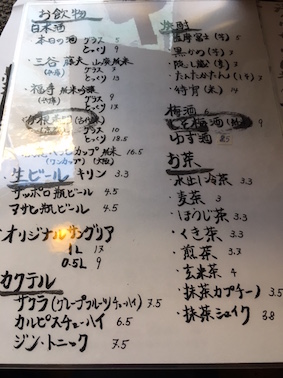 お飲物
日本酒
・本日の酒 グラス 5
とっくり 9
・三谷藤夫 山廃純米
グラス 3
とっくり 13
・福寿 純米吟醸
グラス 9
とっくり 13
10
とっくり 18.5
カップ 純米 16.5
(ワンカップ) (大阪)
生ビール キリン 3.3
サッポロ瓶ビール 4.5
アサヒ瓶ビール 4.5
オリジナルサングリア
1L 17
0.5L 9
カクテル
サワラ(グレープフルーツチューハイ) 7.5
カルピスチューハイ 6.5
ジン・トニック 7.5
焼酎
・黒かつ(芋) 5
・たんたかたん(しそ) 3
梅酒 6
梅酒
ゆず酒 8.5
お茶
・水出し冷茶 3.3
・麦茶 3
・ほうじ茶 3.3
・くき茶 3.3
・煎茶 3.3
・玄米茶 4
・抹茶カプチーノ 3.5
・抹茶シェイク 3.8